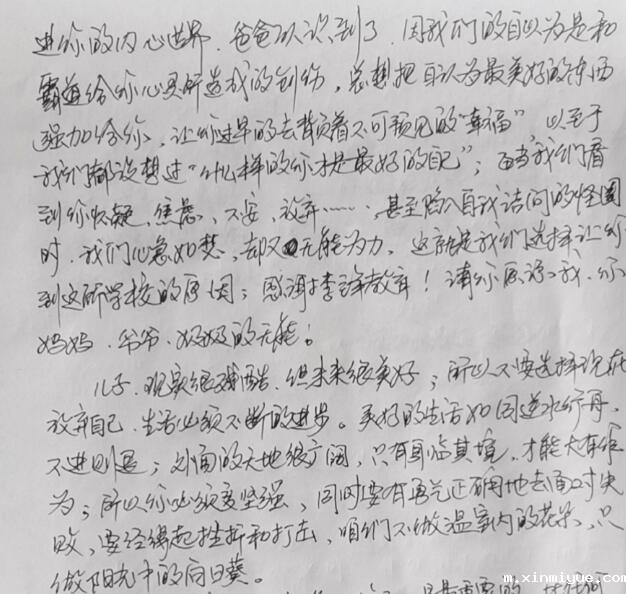 进你的内心世界。爸爸认识到了，因我们的自以为是和
霸道给你心灵所造成的创伤，总想把自认为最美好的东西
强加给你，让你过早的去背负着不可预见的“幸福”，以至于
我们都没想过“什么样的你才是最好的自己”；当我们看
到你怀疑、焦虑、不安、放弃……甚至陷入自我诘问的怪圈
时，我们心急如焚，却又无能为力，这就是我们选择让你
到这所学校的原因；感谢择教育！请你原谅我、你
妈妈、爷爷、奶奶的无能！
儿子，现实很残酷，但未来很美好；所以不要选择现在
放弃自己，生活必须不断的进步。美好的生活如同逆水行舟，
不进则退；外面的天地很广阔，只有身临其境，才能大有作
为；所以你必须要坚强，同时要有勇气正确地去面对失
败，要经得起挫折和打击，咱们不做温室内的花朵，只
做阳光中的向日葵。
m.xinmiyue.com